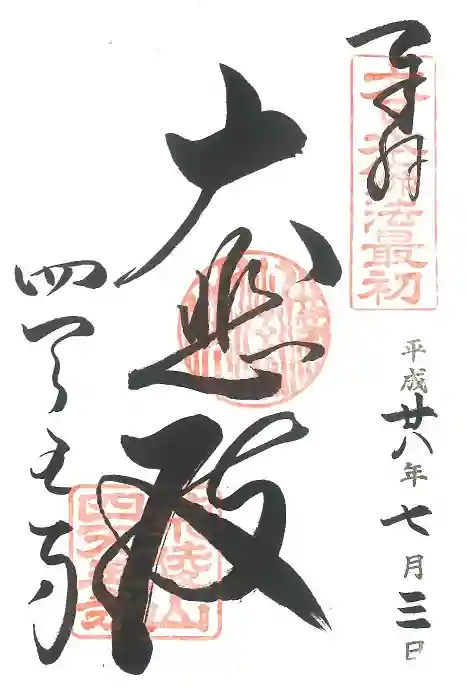 奉拝
大日本佛法最初
平成廿八年七月三日
大悲殿
四天王寺
荒陵山
四天王寺